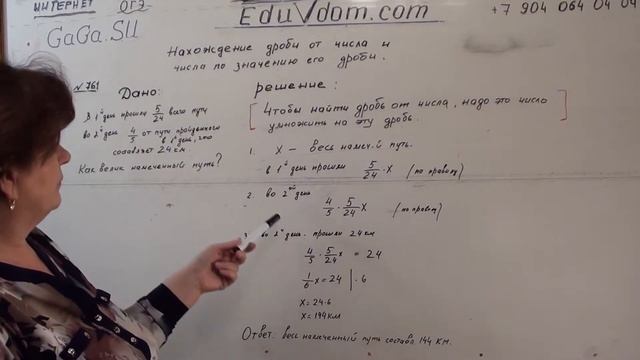 ИНТЕРНЕТ ОГЭ
EduVdom.com
+7 904 064 04 04
GaGa.SU
Нахождение дроби от числа и
числа по значению его дроби.
№ 761
Дано:
В 1й день прошли 5/24 всего пути
Во 2й день 4/5 от пути пройденного
в 1й день, что
составляет 24 км.
Как велик намеченный путь?
решение:
[Чтобы найти дробь от числа, надо это число
умножить на эту дробь.]
1. X – весь намеч.й путь.
в 1й день прошли 5/24 · X (по правилу)
2. Во 2ой день
4/5 · 5/24 X (по правилу)
2й день. прошли 24 км
4/5 · 5/24 x = 24
1/6 x = 24 | · 6
X = 24·6
X = 144 км
Ответ: весь намеченный путь состава 144 км.